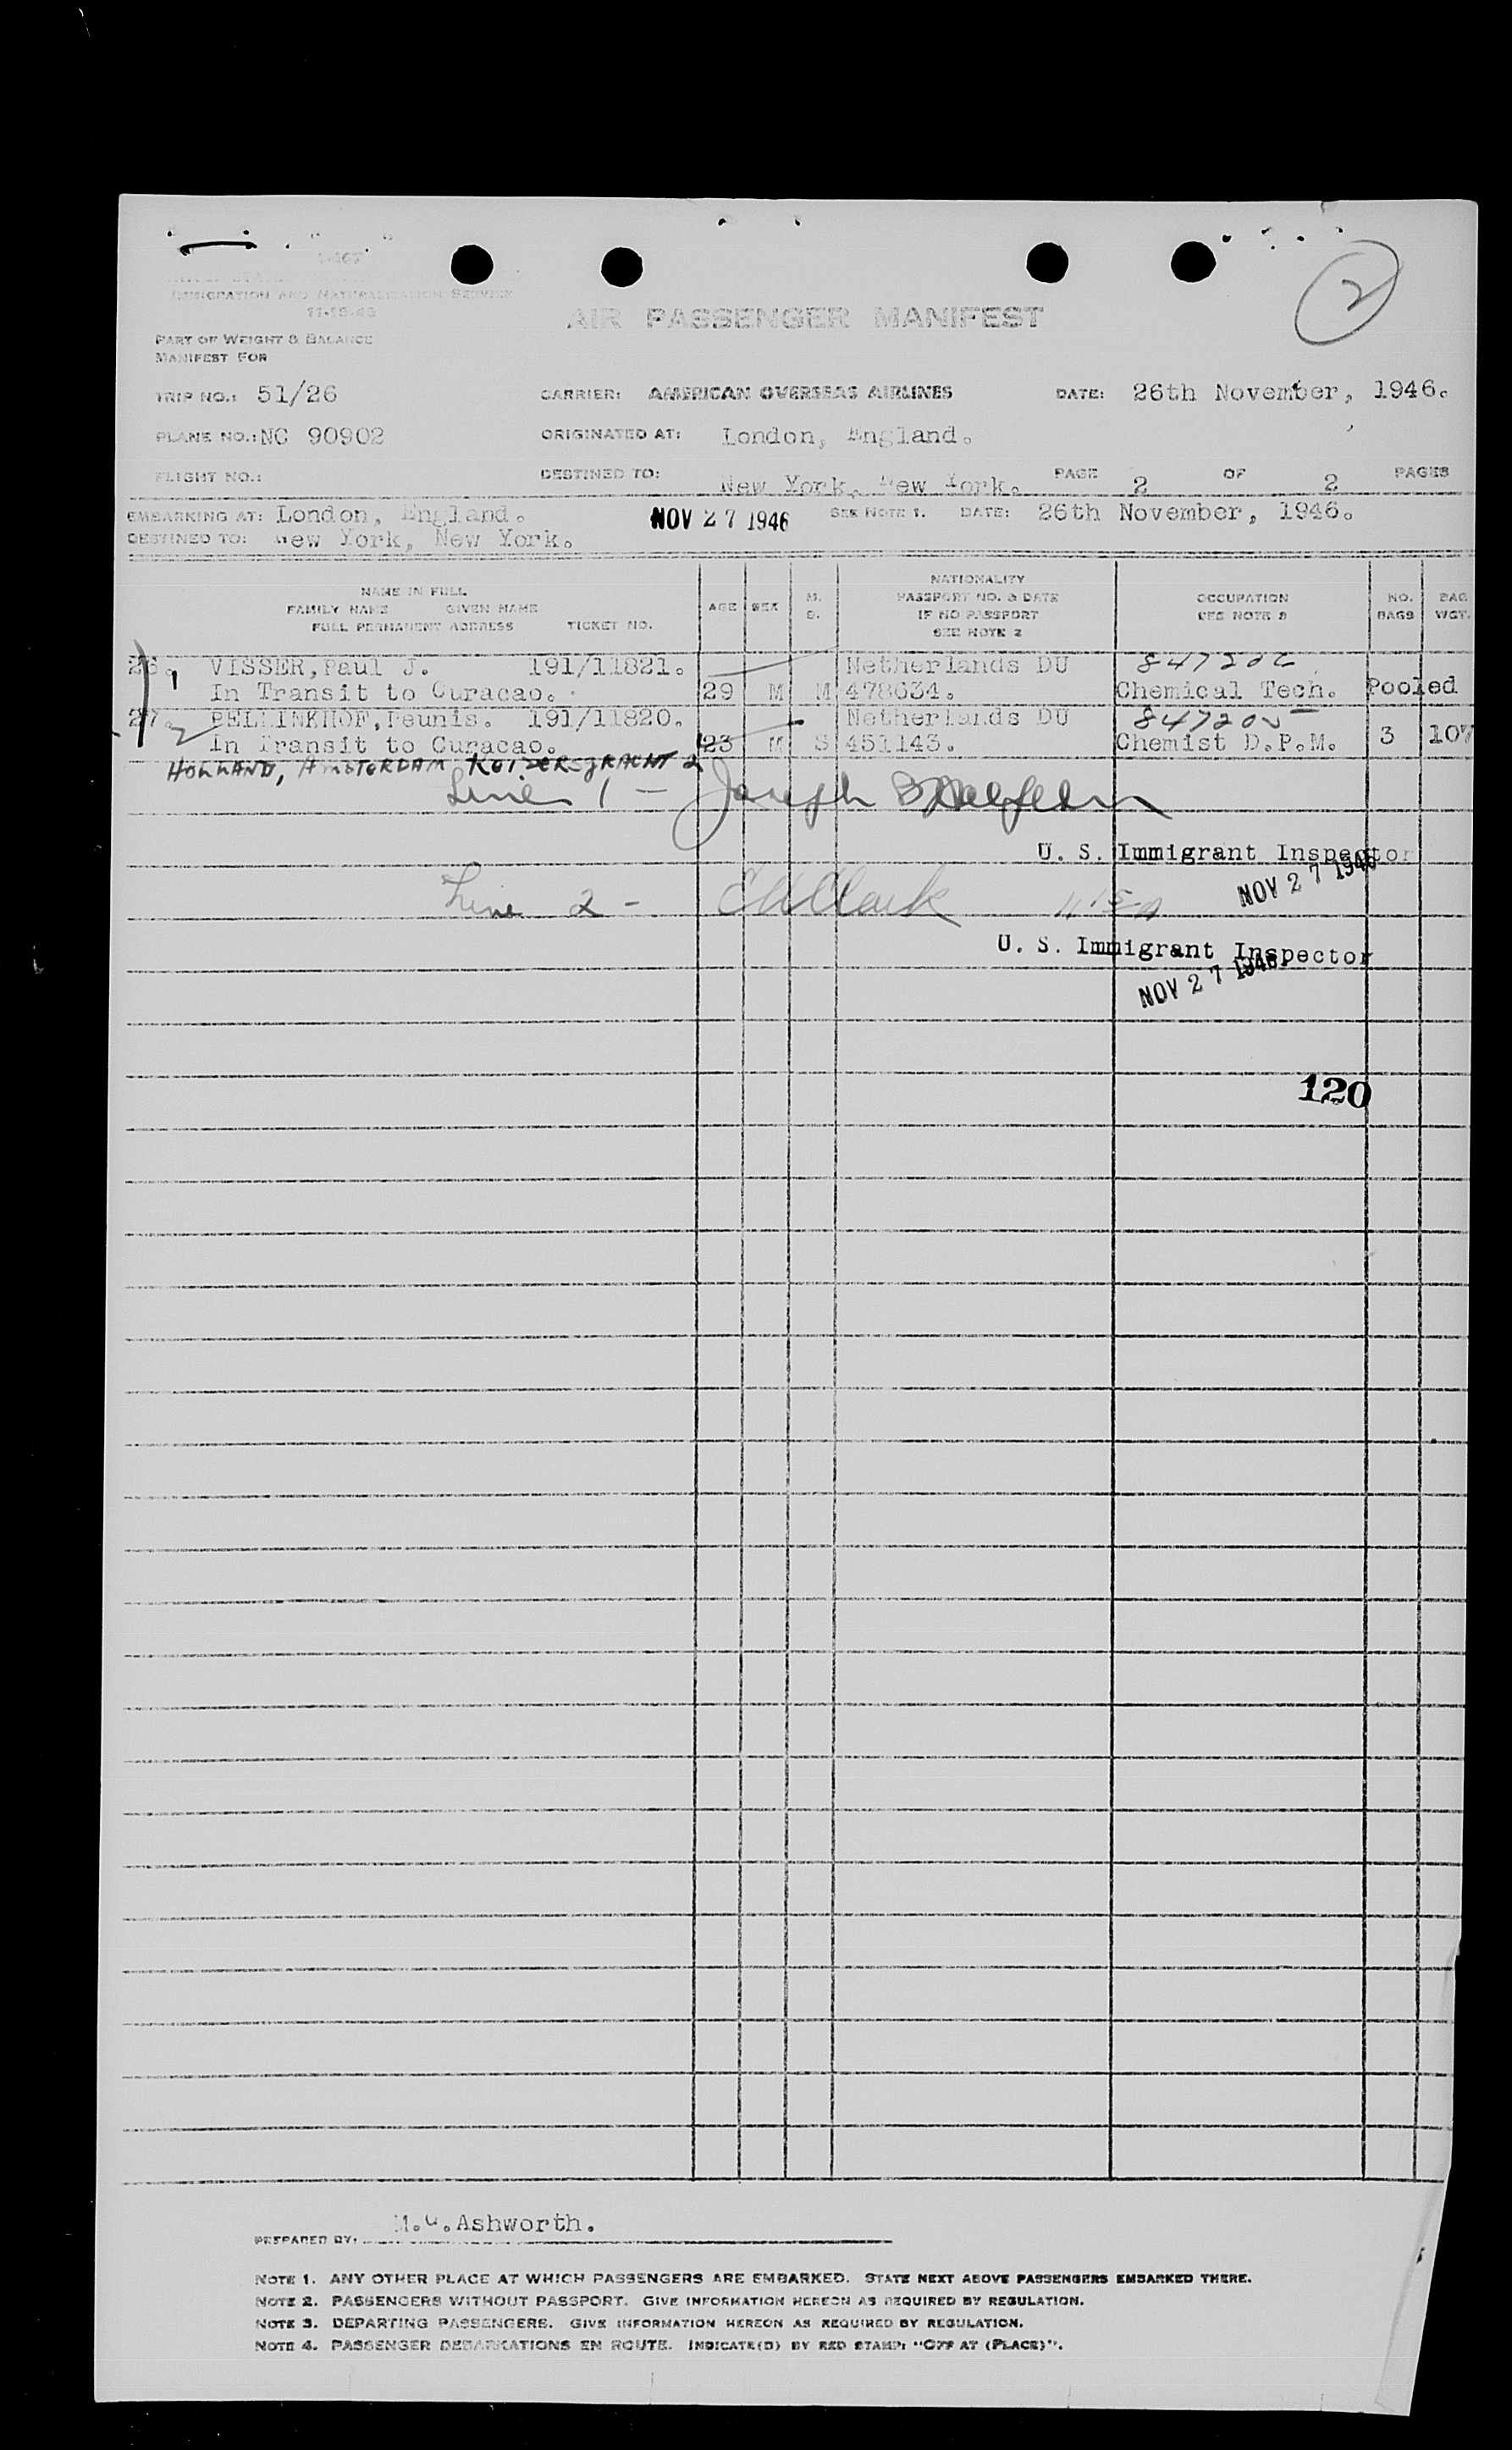 IMMIGRATION AND NATURALIZATION SERVICE
11-15-43
AIR PASSENGER MANIFEST
2
PART OF WEIGHT & BALANCE
MANIFEST FOR
TRIP NO.: 51/26 CARRIER: AMERICAN OVERSEAS AIRLINES DATE: 26th November, 1946.
PLANE NO.: NC 90902 ORIGINATED AT: London, England.
FLIGHT NO.: DESTINED TO: New York, New York. PAGE 2 OF 2 PAGES
EMBARKING AT: London, England. NOV 27 1946 SEE NOTE 1. DATE: 26th November, 1946.
DESTINED TO: New York, New York.
NAME IN FULL
FAMILY NAME GIVEN NAME
FULL PERMANENT ADDRESS TICKET NO. AGE SEX M. S. NATIONALITY PASSPORT NO. & DATE IF NO PASSPORT SEE NOTE 2 OCCUPATION SEE NOTE 3 NO. BAGS BAG WGT.
26. 1 VISSER, Paul J. 191/11821. Netherlands DU
In Transit to Curacao. 29 M M 478634. Chemical Tech. Pooled
27. 2 BELLINKHOF, Teunis. 191/11820. Netherlands DU 847205
In Transit to Curacao. 23 M S 451143. Chemist D.P.M. 3 107
HOLLAND, AMSTERDAM KEIZERSGRACHT
Line 1 - Joseph
U. S. Immigrant Inspector
NOV 27 1946
Line 2 - Clark
U. S. Immigrant Inspector
NOV 27 1946
120
PREPARED BY: Ashworth.
NOTE 1. ANY OTHER PLACE AT WHICH PASSENGERS ARE EMBARKED. STATE NEXT ABOVE PASSENGERS EMBARKED THERE.
NOTE 2. PASSENGERS WITHOUT PASSPORT. GIVE INFORMATION HEREON AS REQUIRED BY REGULATION.
NOTE 3. DEPARTING PASSENGERS. GIVE INFORMATION HEREON AS REQUIRED BY REGULATION.
NOTE 4. PASSENGER DEBARKATIONS EN ROUTE. INDICATE(D) BY RED STAMP: "OFF AT (PLACE)".